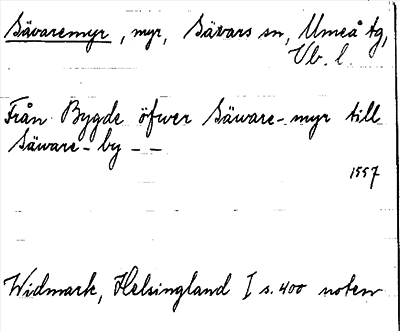 Sävaremyr, myr, Sävars sn, Umeå tg,
Vb. l.
Från Bygde öfwer Säware-myr till
Säware-by - -
1557
Widmark, Helsingland I s. 400 noten